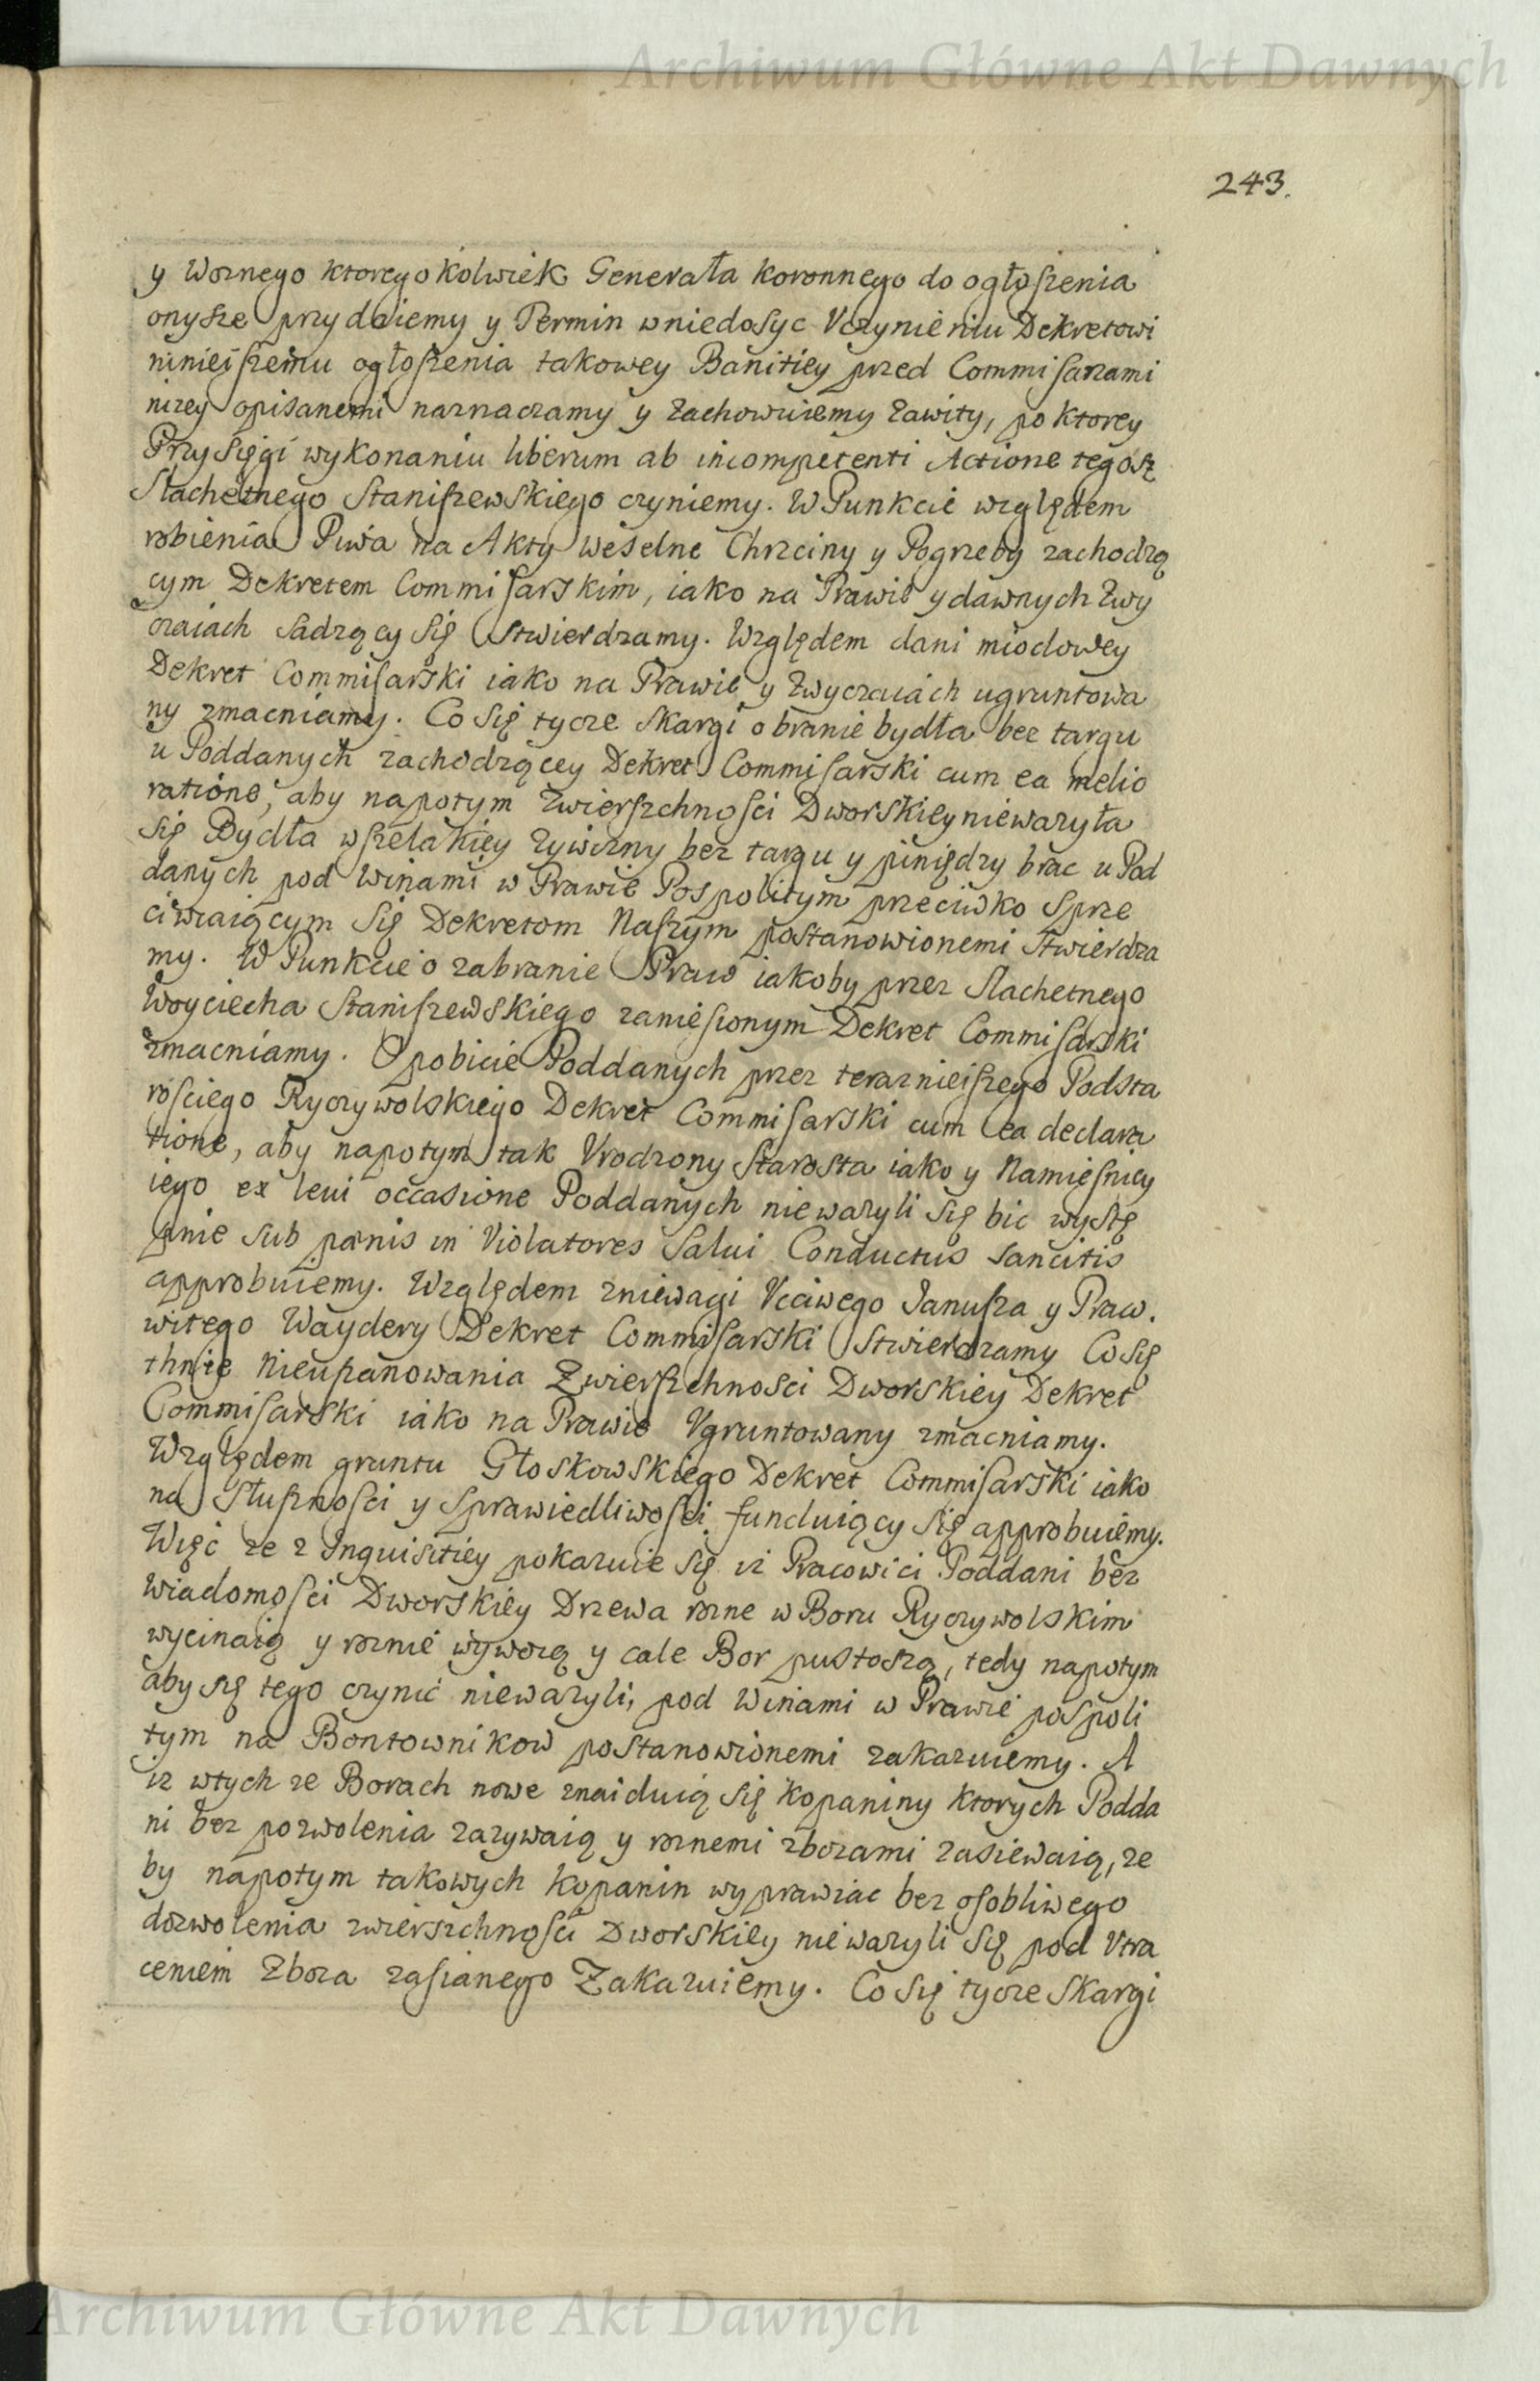 Archiwum Główne Akt Dawnych
243.
y Woznego ktoregokolwiek Generała koronnego do ogłoszenia
onysze przydaiemy y Termin wniedosyc Vczynieniu Dekretowi
ninieiszemu ogłoszenia takowey Banitiey przed Commisarzami
nizey opisanemi naznaczamy y zachowuiemy zawity, po ktorey
Przysięgi wykonaniu liberum ab incompetenti Actione tegosz
Slachetnego Staniszewskiego czyniemy. W Punkcie względem
robienia Piwa na Akty weselne Chrzciny y Pogrzeby zachodzą
cym Dekretem Commisarskim, iako na Prawie y dawnych zwy
czaiach sadzący się stwierdzamy. Względem dani miodowey
Dekret Commisarski iako na Prawie y zwyczaiach ugruntowa
ny zmacniamy. Co się tycze skargi o branie bydła bez targu
u Poddanych zachodzącey Dekret Commisarski cum ea melio
ratione, aby napotym zwierszchnosci Dworskiey niewazyła
się Bydła wszelakiey zywizny bez targu y piniędzy brac u Pod
danych pod winami w Prawie Pospolitym przeciwko sprze
ciwiaiącym się Dekretom Naszym postanowionemi stwierdza
my. W Punkcie o zabranie Praw iakoby przez Slachetnego
Woyciecha Staniszewskiego zaniesionym Dekret Commisarski
zmacniamy. O pobicie Poddanych przez terazniejszego Podsta
rosciego Ryczywolskiego Dekret Commisarski cum ea declara
tione, aby napotym tak Vrodzony Starosta iako y Namiesnicy
iego ex leui occasione Poddanych niewazyli się bic wystę
pnie sub pænis in Violatores Salui Conductus sancitis
approbuiemy. Względem zniewagi Vcciwego Janusza y Praw.
witego Waydery Dekret Commisarski stwierdzamy Co się
thnie Nieuszanowania Zwierszchnosci Dworskiey Dekret
Commisarski iako na Prawie Vgruntowany zmacniamy.
Względem gruntu Głoskowskiego Dekret Commisarski iako
na słusznosci y sprawiedliwosci funduiący się approbuiemy.
Więc ze z Inquisitiey pokazuie się iz Pracowici Poddani bez
wiadomosci Dworskiey Drzewa rozne w Boru Ryczywolskim
wycinaią y roznie wywozą y cale Bor pustoszą, tedy napotym
aby się tego czynić niewazyli, pod winami w Prawie pospoli
tym na Bontownikow postanowionemi zakazuiemy. A
iz wtych ze Borach nowe znaiduią się kopaniny ktorych Podda
ni bez pozwolenia zazywaią y roznemi zbozami zasiewaią, ze
by napotym takowych kopanin wyprawiac bez osobliwego
dozwolenia zwierszchnosci Dworskiey niewazyli się pod Vtra
ceniem zboza zasianego Zakazuiemy. Co się tycze skargi
Archiwum Główne Akt Dawnych